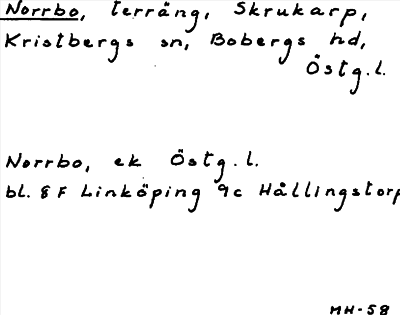 Norrbo, terräng, Skrukarp,
Kristbergs sn, Bobergs hd,
Östg.l.
Norrbo, ek Östg.l.
bl. 8 F Linköping 9c Hållingstorp
MH-58